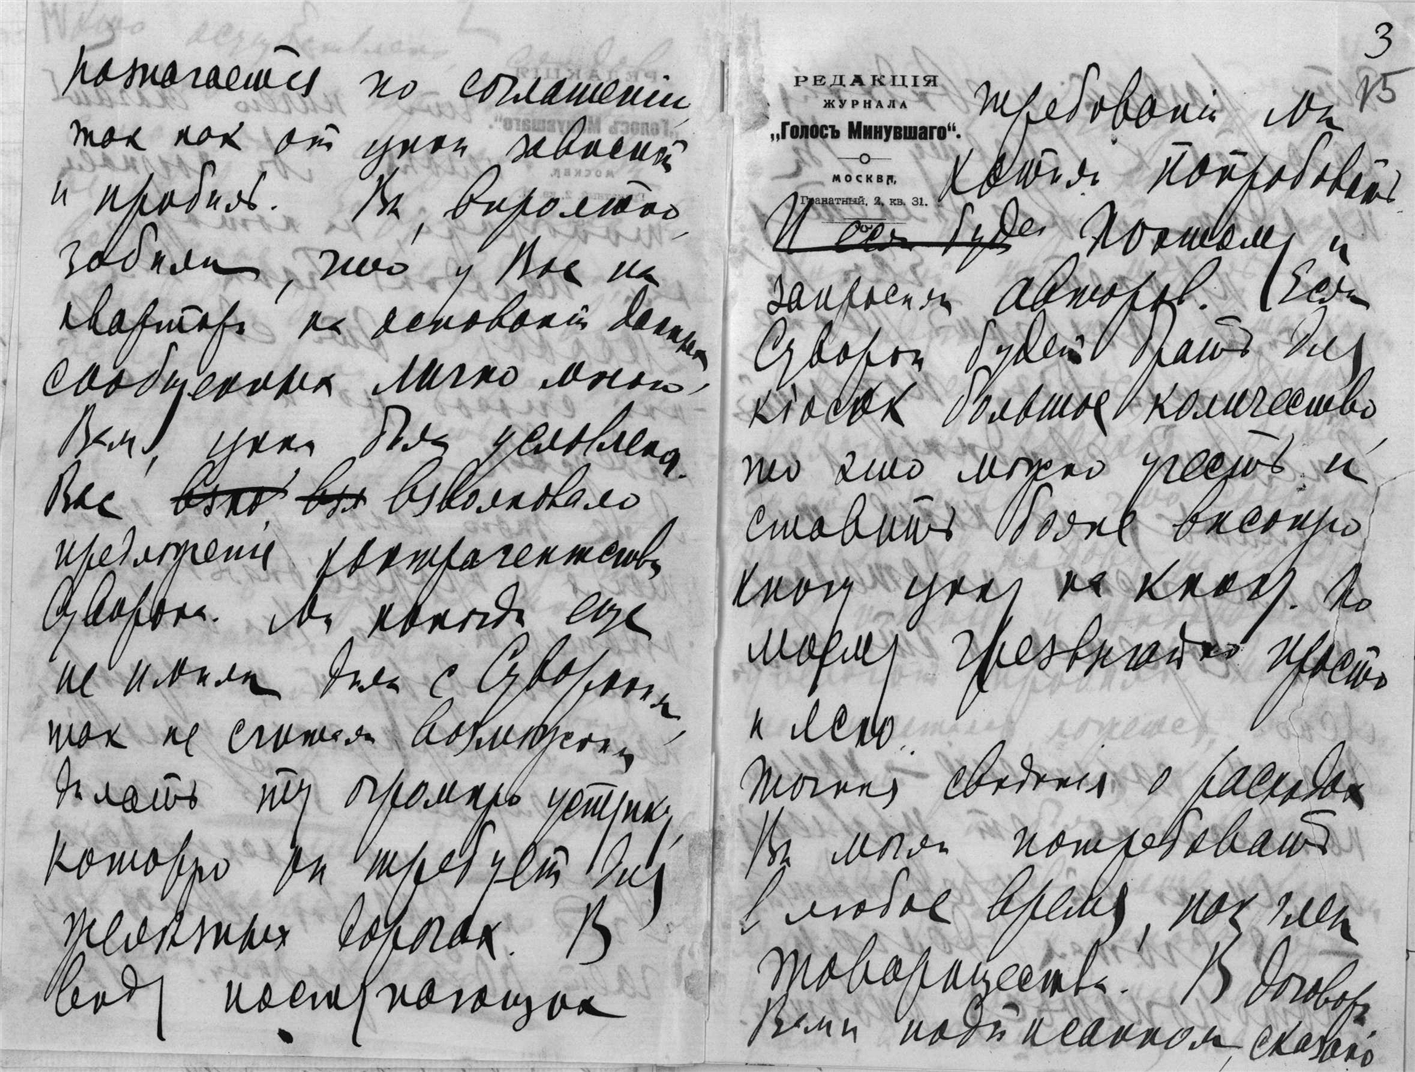 назначается по соглашенію,
так как от цены зависит
и прибыль. Вы, вероятно,
забыли, что у Вас на
квартире на основаніи данных
сообщенных лично мною
Вам, цена была условлена.
Вас взволновало
предложеніе контрагентства
Суворина. Мы никогда еще
не имели дела с Сувориным,
так не считали возможным
делать ту огромную уступку,
которую он требует для
железных дорогах. В
виду поступающих
3
15
РЕДАКЦІЯ
ЖУРНАЛА
„Голосъ Минувшаго“.
МОСКВА,
Гранатный, 2, кв. 31.
требованій мы
хотели попробовать.
И если будет Поэтому и
запросили авторов. Если
Суворин будет брать для
кіосок большое количество,
то это можно учесть и
ставить более высокую
цену на книгу. По
моему чрезвычайно просто
и ясно.
Точныя сведенія о расходах
Вы могли потребовать
в любое время, как член
товарищества. В договоре
Вами подписанном, сказано